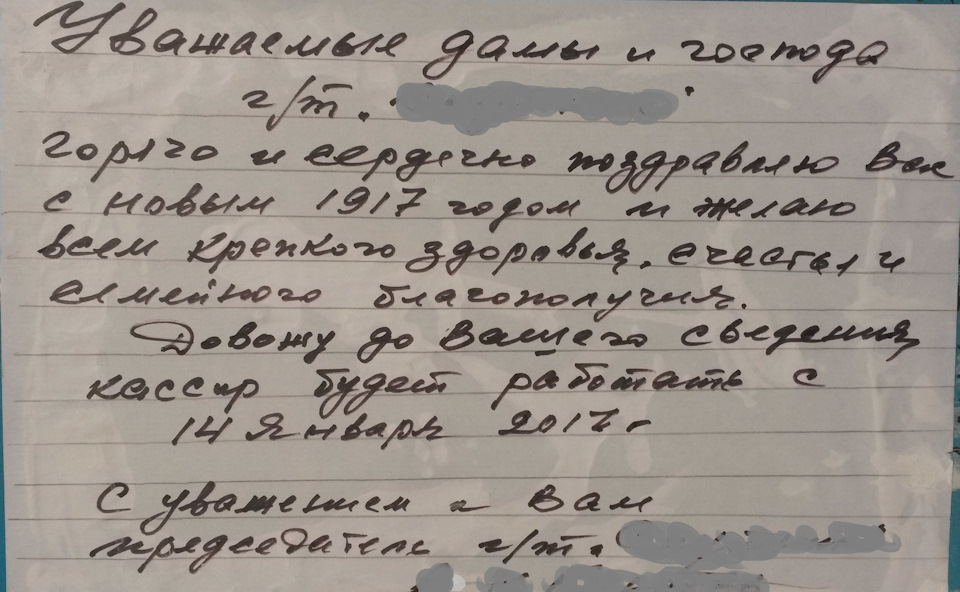 Уважаемые дамы и господа
г/т.
горячо и сердечно поздравляю Вас
с новым 1917 годом и желаю
всем крепкого здоровья, счастья и
семейного благополучия.
Довожу до Вашего сведения,
кассир будет работать с
14 Января 2017 г
С уважением к Вам
председатель г/т.